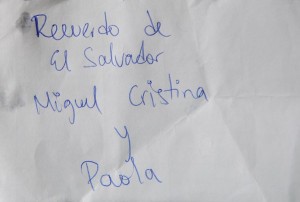 Recuerdo de
El Salvador
Miguel Cristina
y
Paola